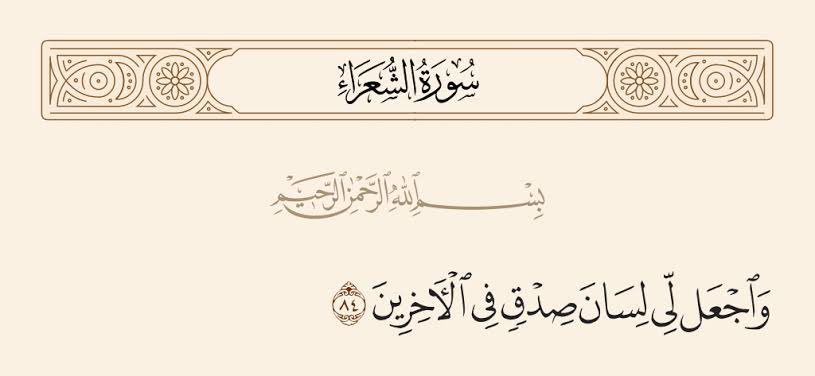 سُورَةُ الشُّعَرَاءِ
بِسْمِ ٱللَّهِ ٱلرَّحْمَٰنِ ٱلرَّحِيمِ
وَٱجْعَل لِّى لِسَانَ صِدْقٍ فِى ٱلْـَٔاخِرِينَ ٨٤